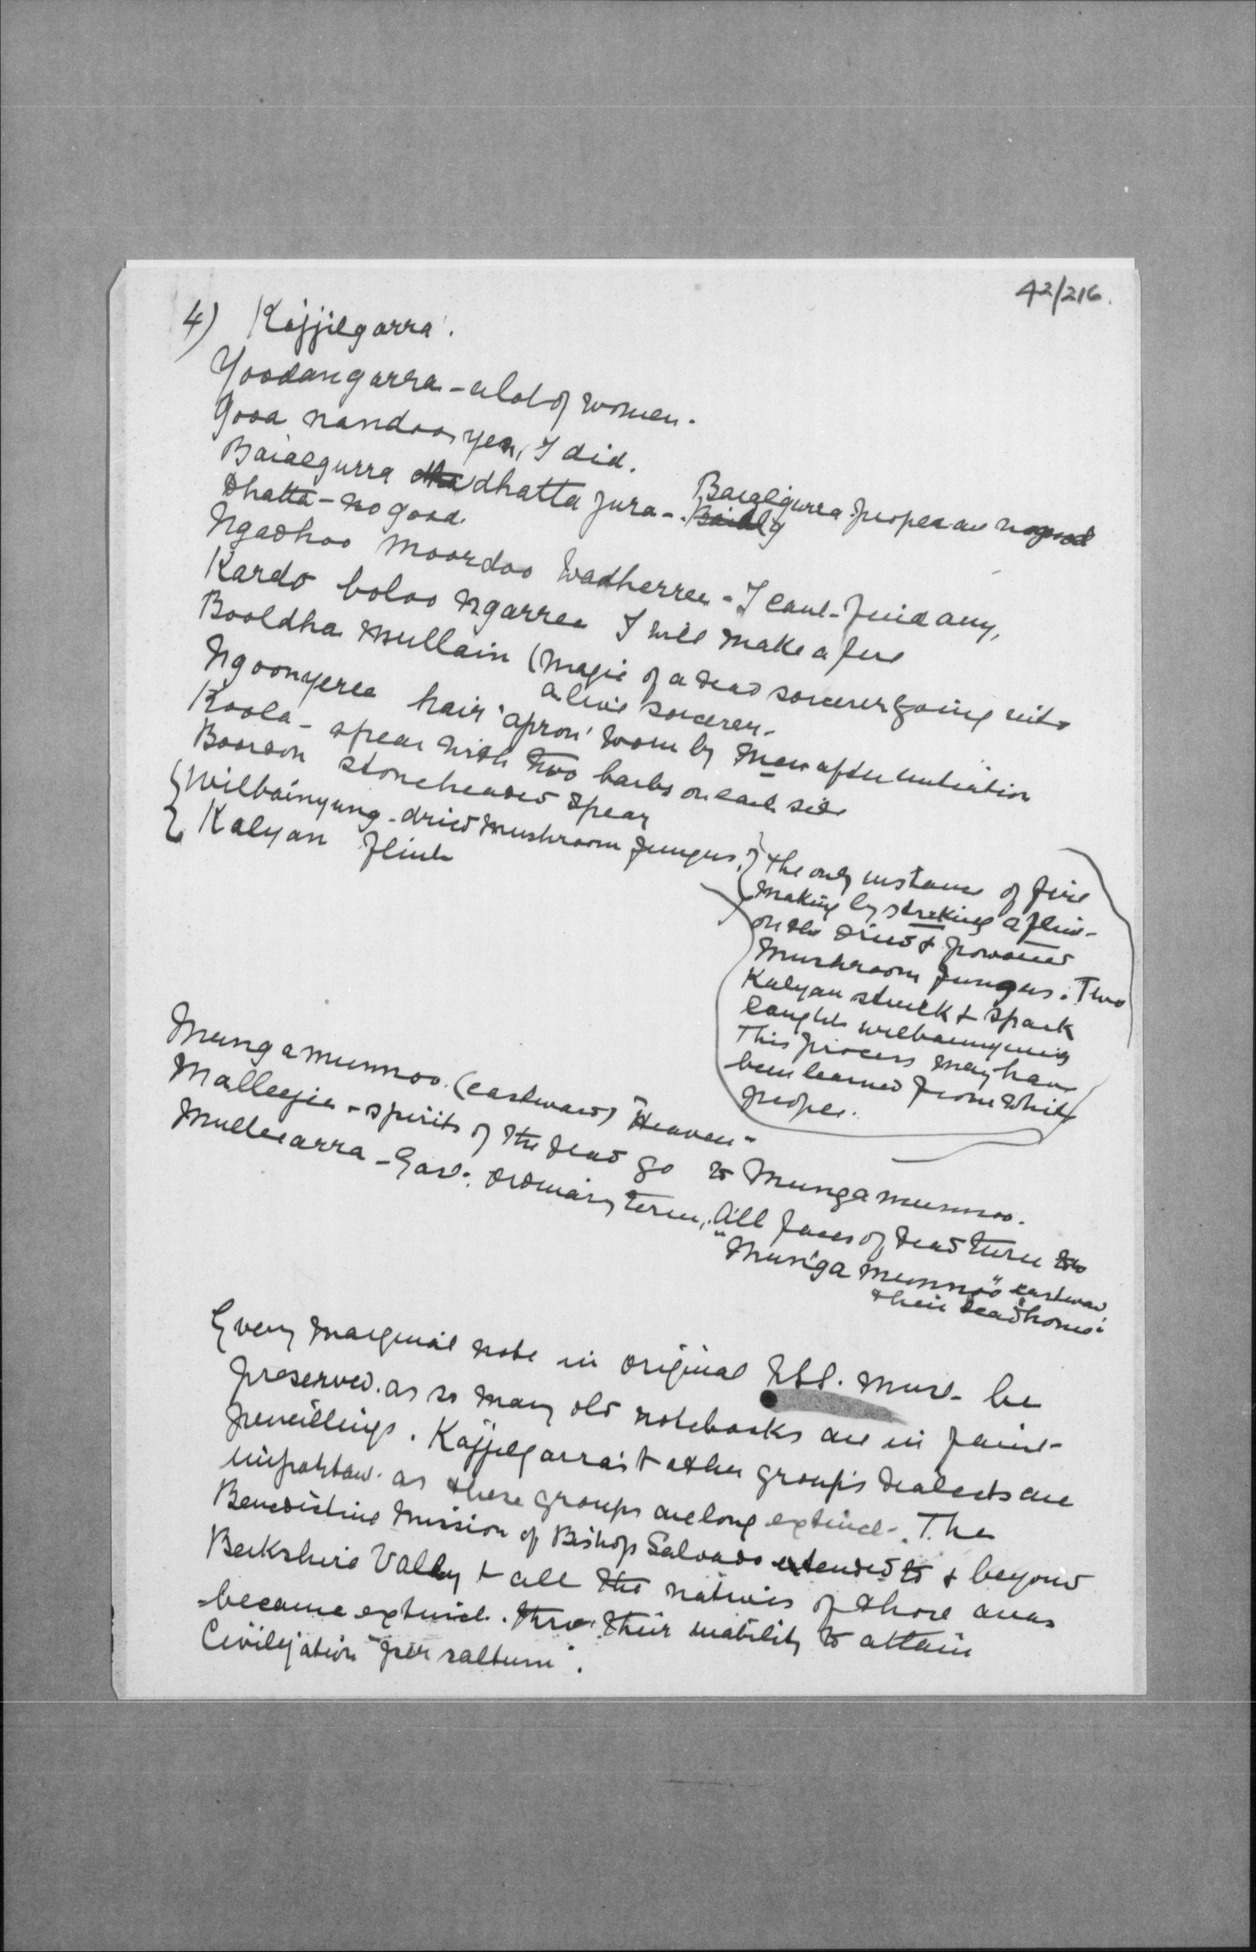 42/216.
4) Kajjilgarra.
Yoodangarra - a lot of women.
Gooa nandoo, yes, I did.
Baialgurra dhatta jura - Baialgurra people are no good
Dhatta - no good.
Ngadhoo moordoo wadherree - I can't find any,
Kardo boloo ngarree I will make a fire
Booldha mullain (magic of a dead sorcerer going into
a live sorcerer.
Ngoonyeree hair 'apron' worn by men after initiation
Koola - spear with two barbs on each side
Booroon stoneheaded spear
Wilbainyung - dried mushroom fungus.
Kalyan flint
The only instance of fire
making by striking a flint
on the dried & powdered
mushroom fungus. Two
Kalyan struck & spark
caught wilbainyung
This process may have
been learned from white
people.
Mungamunnoo (eastward) "Heaven"
Malleejie - spirits of the dead go to Mungamunnoo.
Mulleearra - Gen. ordinary term, All faces of dead turn to
"Munga munnoo" eastward
their dead home"
Every marginal note in original MSS. must be
preserved as so many old notebooks are in faint
pencillings. Kajjilgarra's & other groups dialects are
important as these groups are long extinct. The
Benedictine Mission of Bishop Salvado extended to & beyond
Berkshire Valley & all the natives of those areas
became extinct thro' their inability to attain
Civilization "per saltum".